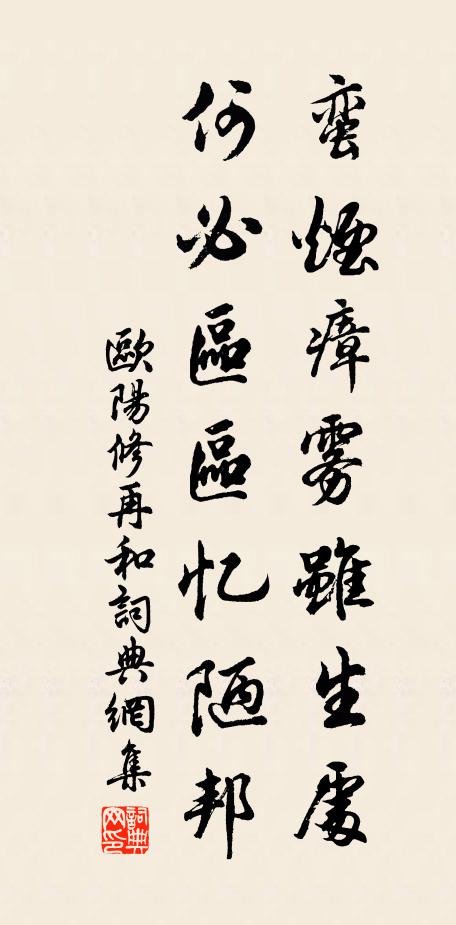 蛮煙瘴雾雖生處
何必區區忆陋邦
歐陽修再和詞典網集
詞典网印